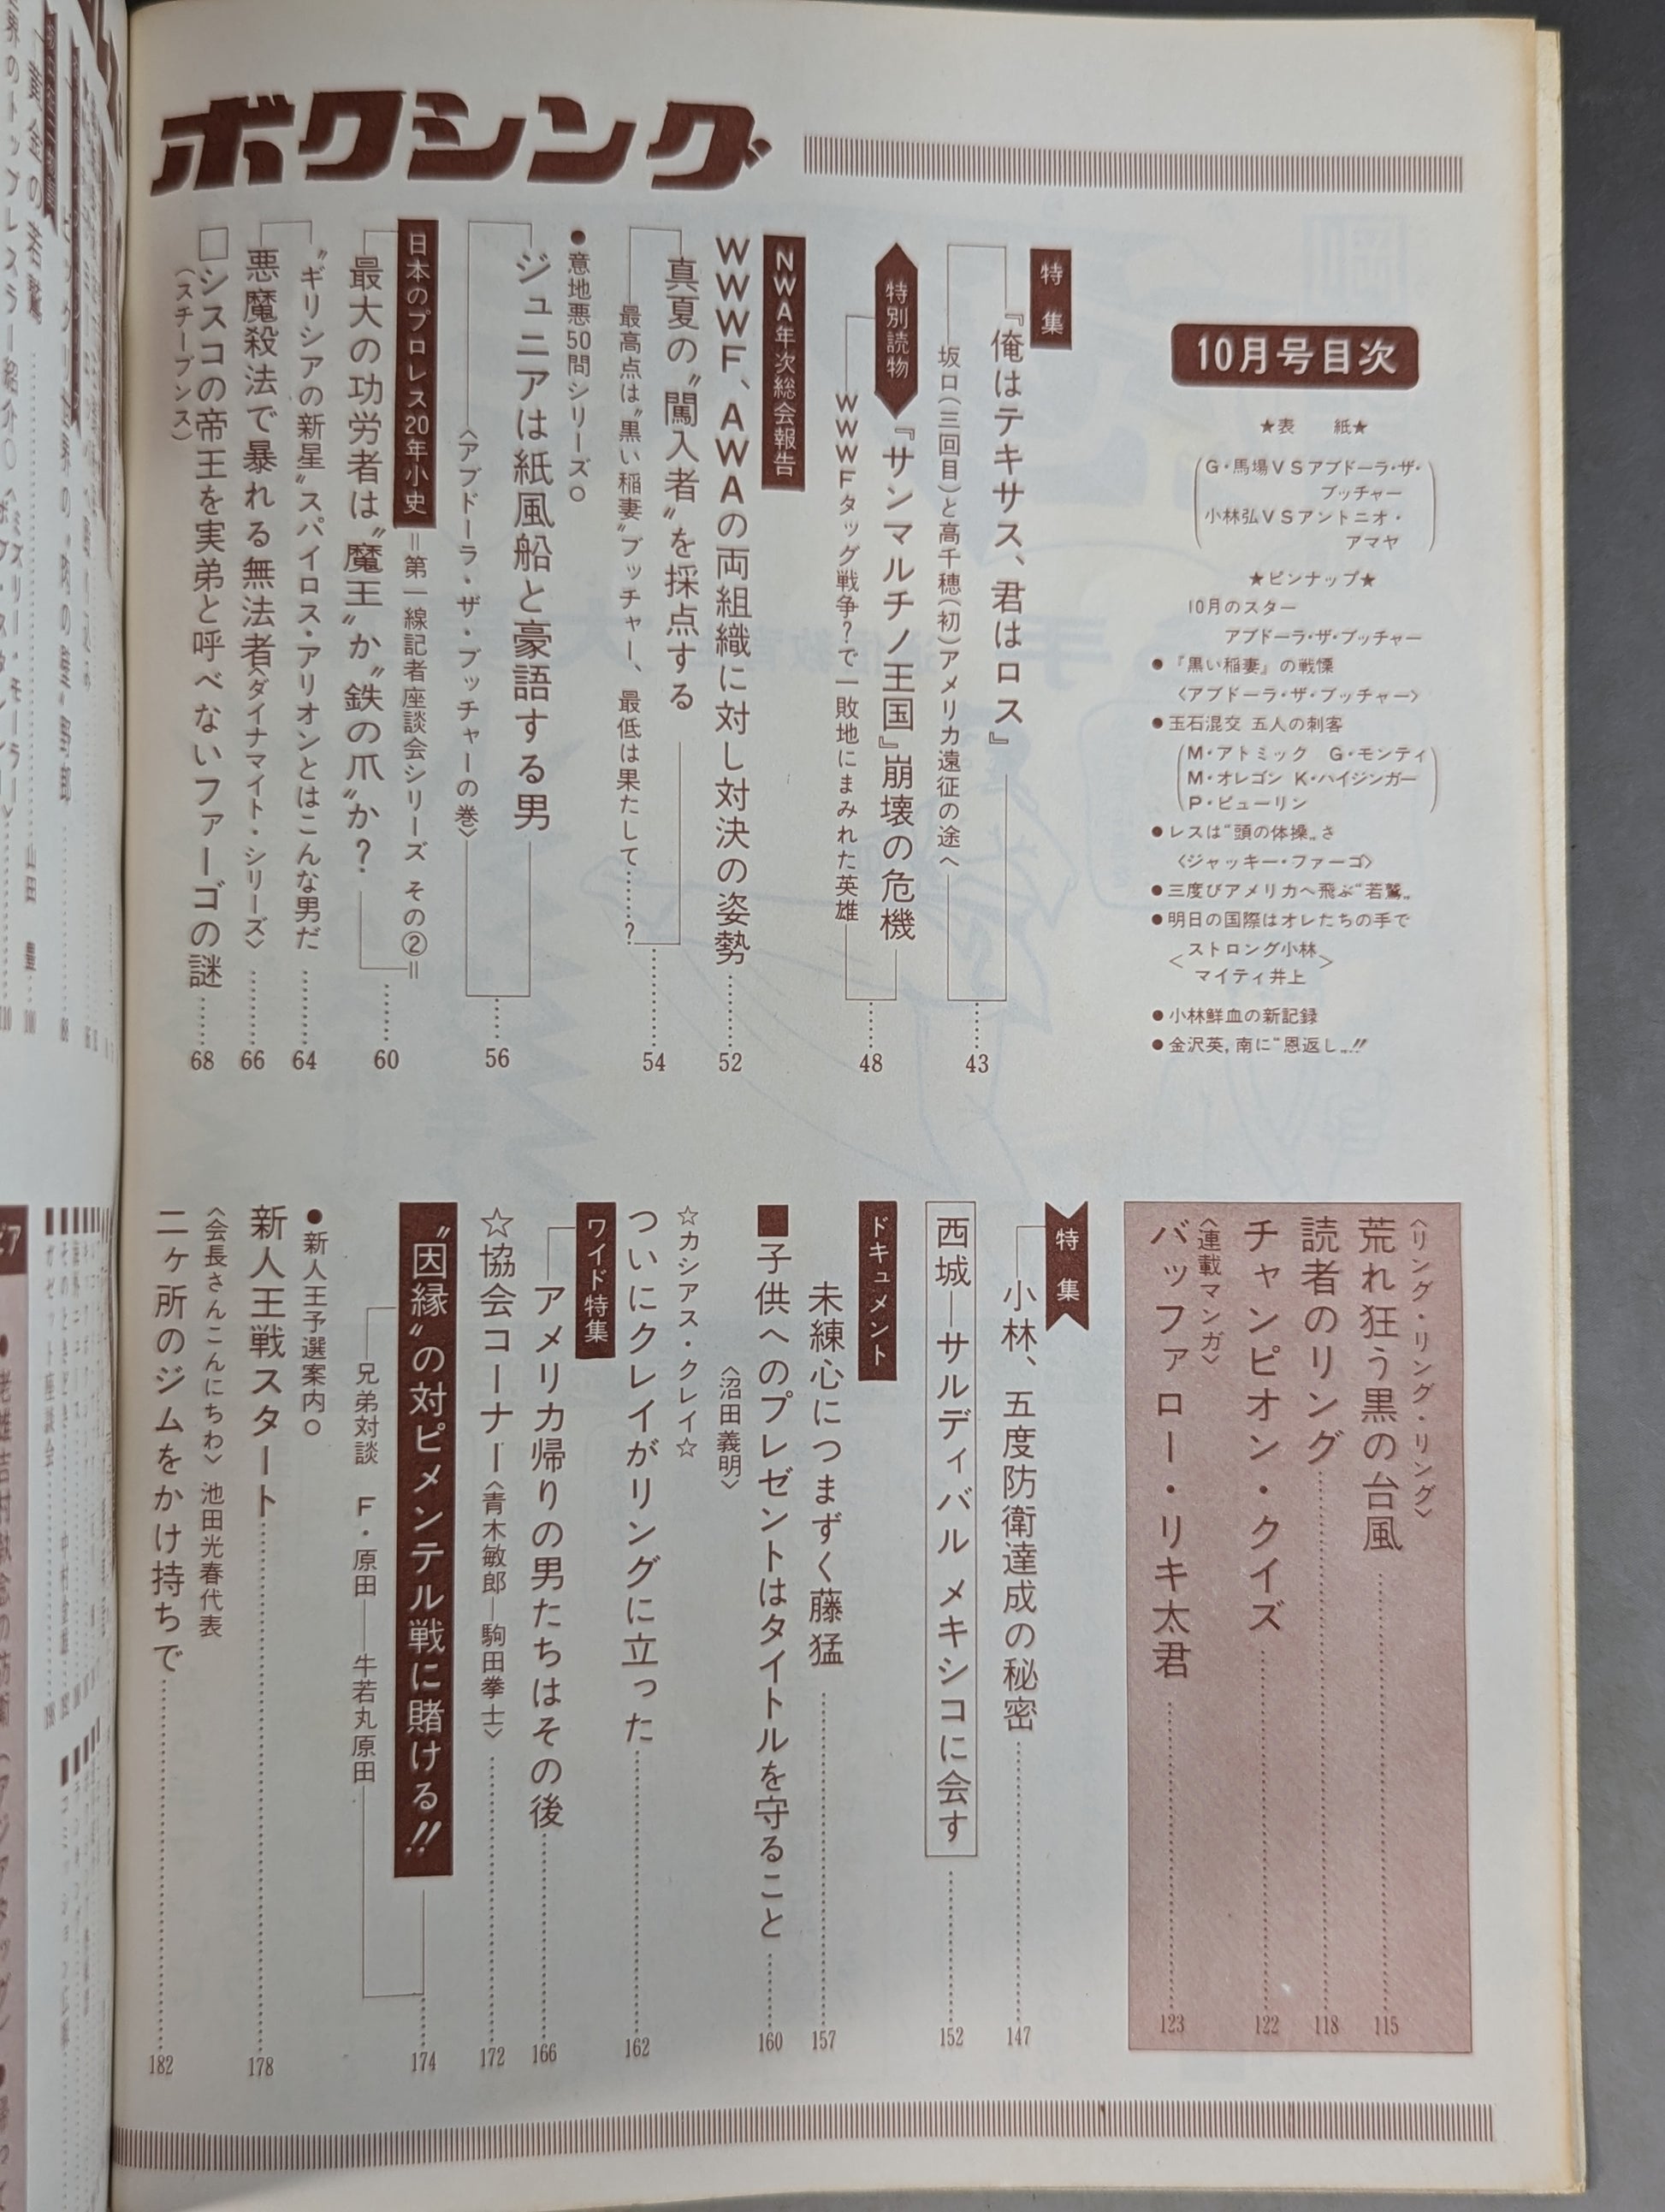 ボクシング
10月号目次
★表 紙★
G・馬場VSアブドーラ・ザ・
ブッチャー
小林弘VSアントニオ・
アマヤ
★ピンナップ★
10月のスター
アブドーラ・ザ・ブッチャー
●『黒い稲妻』の戦慄
〈アブドーラ・ザ・ブッチャー〉
●玉石混交 五人の刺客
M・アトミック G・モンティ
M・オレゴン K・ハイジンガー
P・ビューリン
●レスは“頭の体操„さ
〈ジャッキー・ファーゴ〉
●三度びアメリカへ飛ぶ“若鷲„
●明日の国際はオレたちの手で
ストロング小林
マイティ井上
●小林鮮血の新記録
●金沢英,南に“恩返し„!!
特集
『俺はテキサス、君はロス』
坂口(三回目)と高千穂(初)アメリカ遠征の途へ……43
特別読物
『サンマルチノ王国』崩壊の危機
WWWFタッグ戦争?で一敗地にまみれた英雄……48
NWA年次総会報告
WWWF、AWAの両組織に対し対決の姿勢……52
真夏の〝闖入者〟を採点する
最高点は〝黒い稲妻〟ブッチャー、最低は果たして……?……54
●意地悪50問シリーズ○
ジュニアは紙風船と豪語する男
〈アブドーラ・ザ・ブッチャーの巻〉……56
日本のプロレス20年小史=第一線記者座談会シリーズ その②=
最大の功労者は〝魔王〟か〝鉄の爪〟か?……60
〝ギリシアの新星〟スパイロス・アリオンとはこんな男だ……64
悪魔殺法で暴れる無法者〈ダイナマイト・シリーズ〉……66
□シスコの帝王を実弟と呼べないファーゴの謎……68
(スチーブンス)
〈リング・リング・リング〉
荒れ狂う黒の台風……115
読者のリング……118
チャンピオン・クイズ……122
〈連載マンガ〉
バッファロー・リキ太君……123
特集
小林、五度防衛達成の秘密……147
西城―サルディバル メキシコに会す……152
ドキュメント
未練心につまずく藤猛……157
■子供へのプレゼントはタイトルを守ること……160
〈沼田義明〉
☆カシアス・クレイ☆
ついにクレイがリングに立った……162
ワイド特集
アメリカ帰りの男たちはその後……166
☆協会コーナー〈青木敏郎―駒田拳士〉……172
〝因縁〟の対ピメンテル戦に賭ける!!
兄弟対談 F・原田――牛若丸原田……174
●新人王予選案内○
新人王戦スタート……178
〈会長さんこんにちわ〉池田光春代表
二ヶ所のジムをかけ持ちで……182